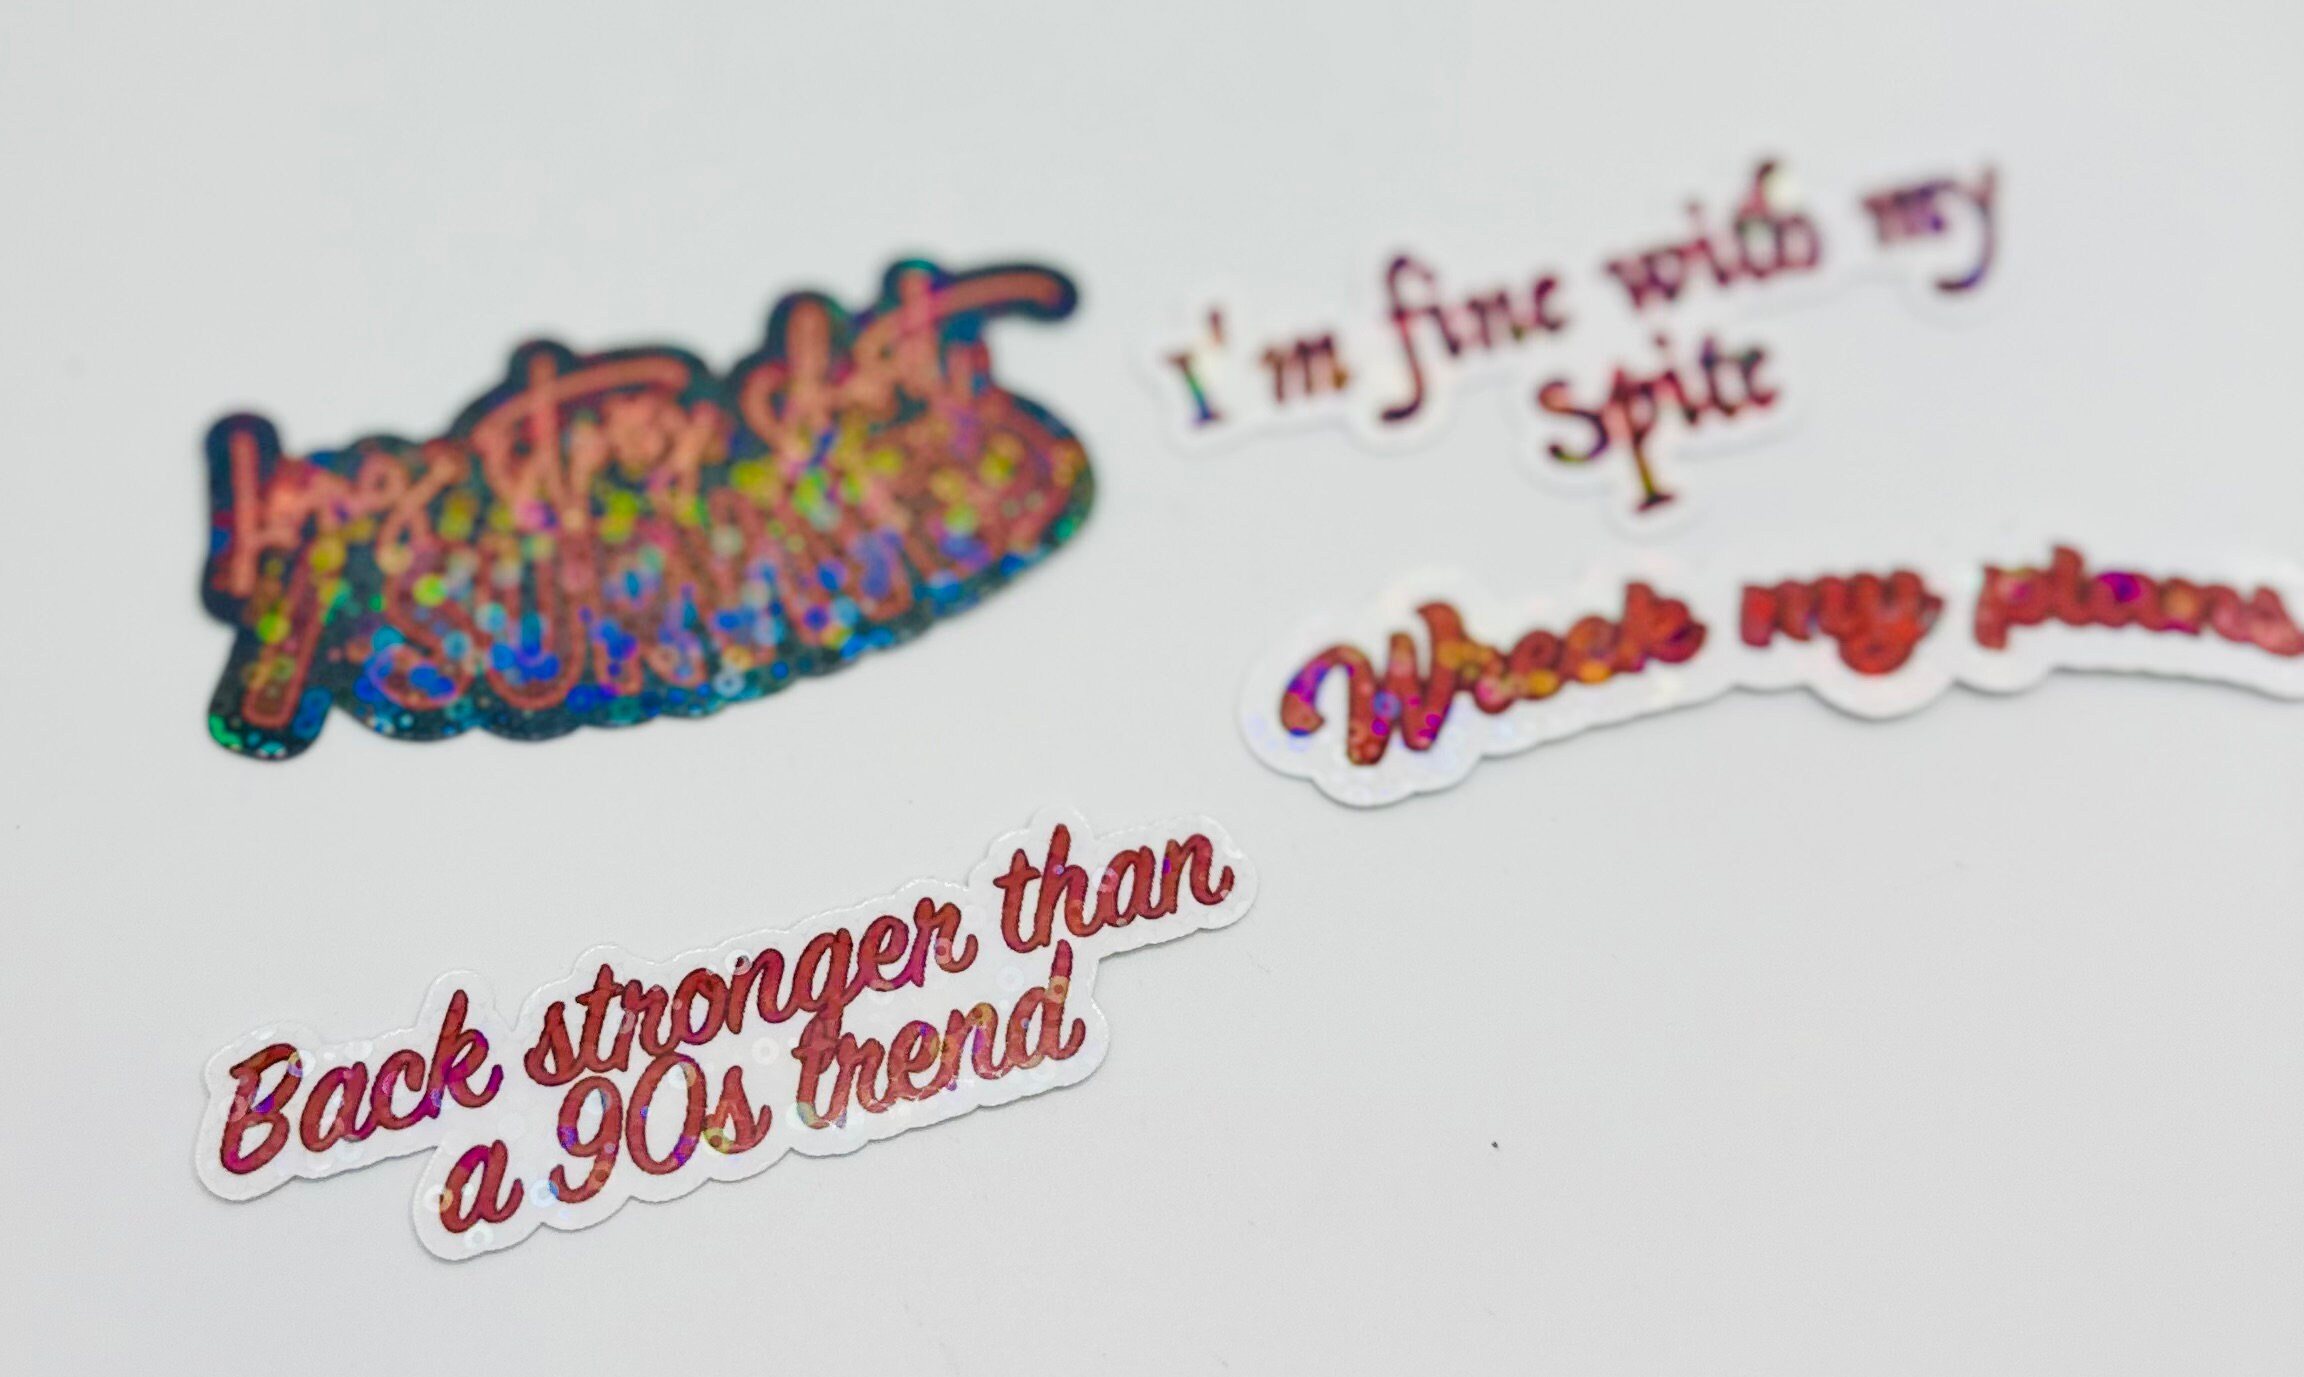 Long story short,
I SURVIVED
I'm fine with my
Spite
Wreck my plans
Back stronger than
a 90s trend